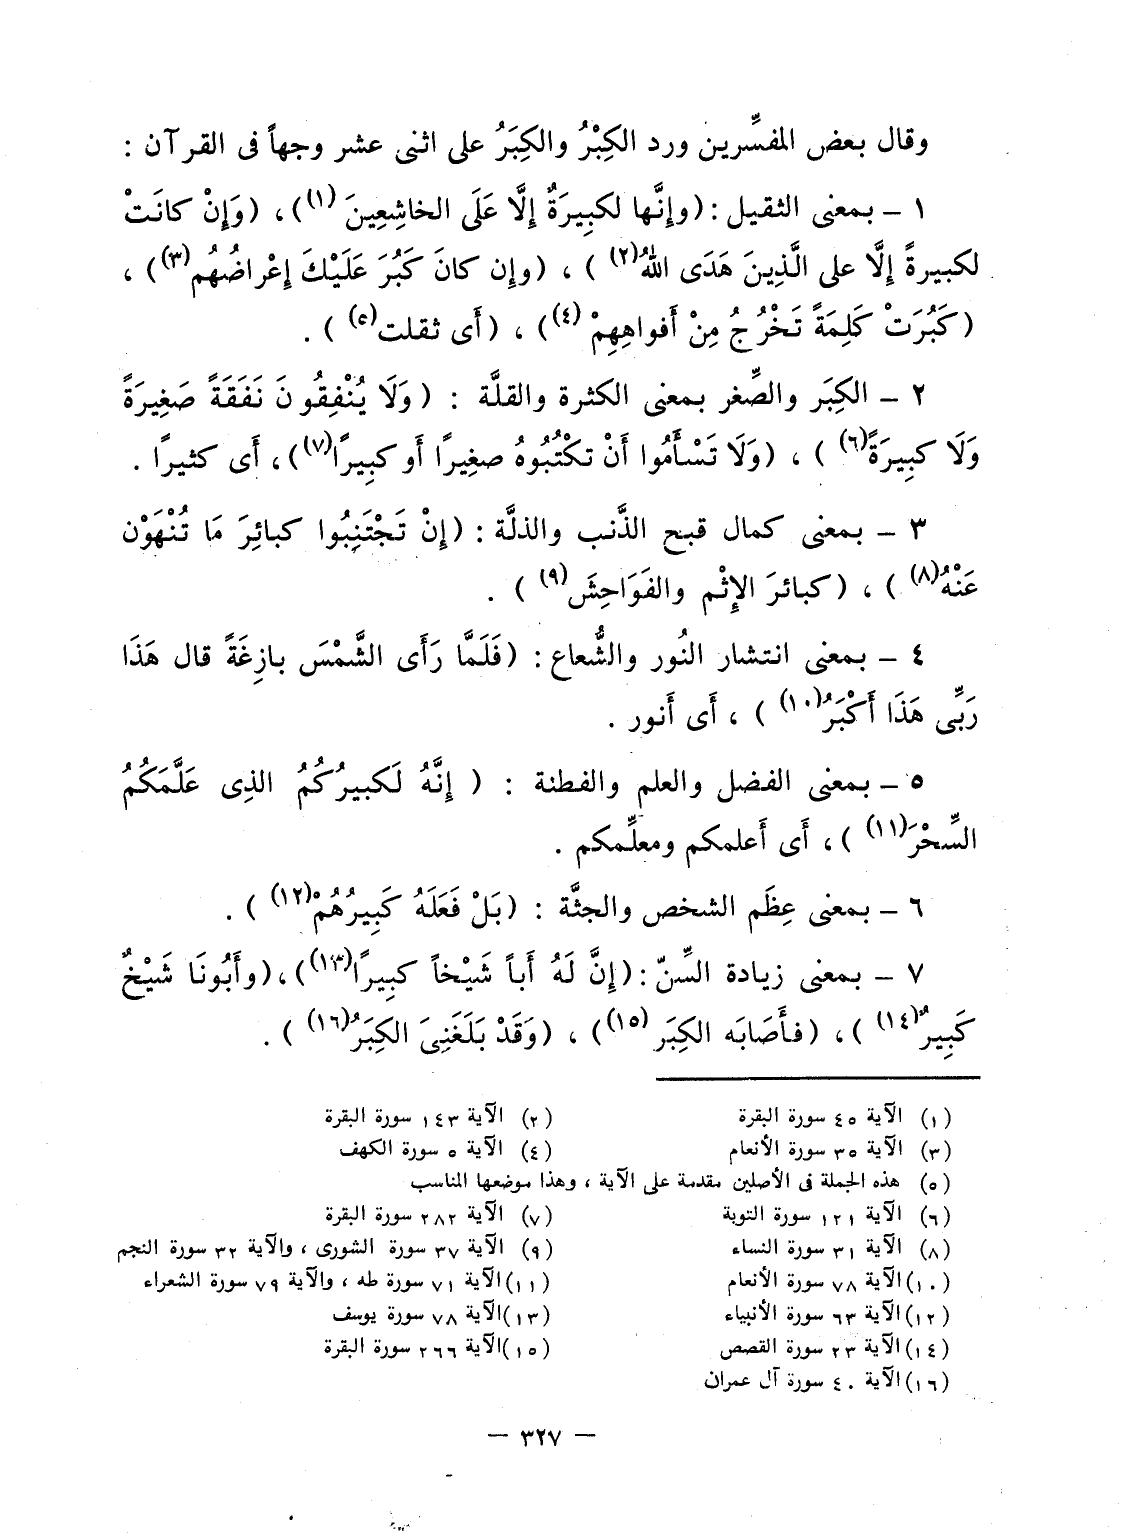 وقال بعض المفسِّرين ورد الكِبْرُ والكِبَرُ على اثنى عشر وجهاً فى القرآن :
١ – بمعنى الثقيل : (وإنَّها لكبِيرَةٌ إِلَّا عَلَى الخاشِعِينَ (١)) ، (وَإِنْ كانَتْ
لكبيرةً إلَّا على الَّذِينَ هَدَى اللهُ(٢) ) ، (وإن كانَ كَبُرَ عَلَيْكَ إِعْراضُهُم(٣)) ،
(كَبُرَتْ كَلِمَةً تَخْرُجُ مِنْ أَفواهِهِمْ (٤)) ، (أَى ثقلت(٥) ) .
٢ – الكِبَر والصِّغر بمعنى الكثرة والقلَّة : (وَلَا يُنْفِقُونَ نَفَقَةً صَغِيرَةً
وَلَا كبِيرَةً(٦) ) ، (وَلَا تَسْأَمُوا أَنْ تكْتُبُوهُ صغِيرًا أَو كبِيرًا(٧)) ، أَى كثيرًا .
٣ – بمعنى كمال قبح الذَّنب والذلَّة : (إِنْ تَجْتَنِبُوا كبائِرَ مَا تُنْهَوْن
عَنْهُ(٨) ) ، (كبائرَ الإِثْم والفَوَاحِشَ(٩) ) .
٤ – بمعنى انتشار النُور والشُّعاع : (فَلَمَّا رَأَى الشَّمْسَ بازِغَةً قال هَذَا
رَبِّى هَذَا أَكْبَرُ(١٠) ) ، أَى أَنور .
٥ – بمعنى الفضل والعلم والفطنة : ( إِنَّهُ لَكبيرُكُمُ الذِى عَلَّمَكُمُ
السِّحْرَ(١١) ) ، أَى أَعلمكم ومعلِّمكم .
٦ – بمعنى عِظَم الشخص والجثَّة : (بَلْ فَعَلَهُ كَبِيرُهُمْ(١٢) ) .
٧ – بمعنى زيادة السِّنّ : (إِنَّ لَهُ أَباً شَيْخاً كبِيرًا(١٣)) ، (وأَبُونَا شَيْخٌ
كَبِيرٌ(١٤) ) ، (فأَصَابَه الكِبَر (١٥)) ، (وَقَدْ بَلَغَنِىَ الكِبَرُ(١٦) ) .
(١) الآية ٤٥ سورة البقرة (٢) الآية ١٤٣ سورة البقرة
(٣) الآية ٣٥ سورة الأنعام (٤) الآية ٥ سورة الكهف
(٥) هذه الجملة فى الأصلين مقدمة على الآية ، وهذا موضعها المناسب
(٦) الآية ١٢١ سورة التوبة (٧) الآية ٢٨٢ سورة البقرة
(٨) الآية ٣١ سورة النساء (٩) الآية ٣٧ سورة الشورى ، والآية ٣٢ سورة النجم
(١٠) الآية ٧٨ سورة الأنعام (١١) الآية ٧١ سورة طه ، والآية ٧٩ سورة الشعراء
(١٢) الآية ٦٣ سورة الأنبياء (١٣) الآية ٧٨ سورة يوسف
(١٤) الآية ٢٣ سورة القصص (١٥) الآية ٢٦٦ سورة البقرة
(١٦) الآية ٤٠ سورة آل عمران
– ٣٢٧ –